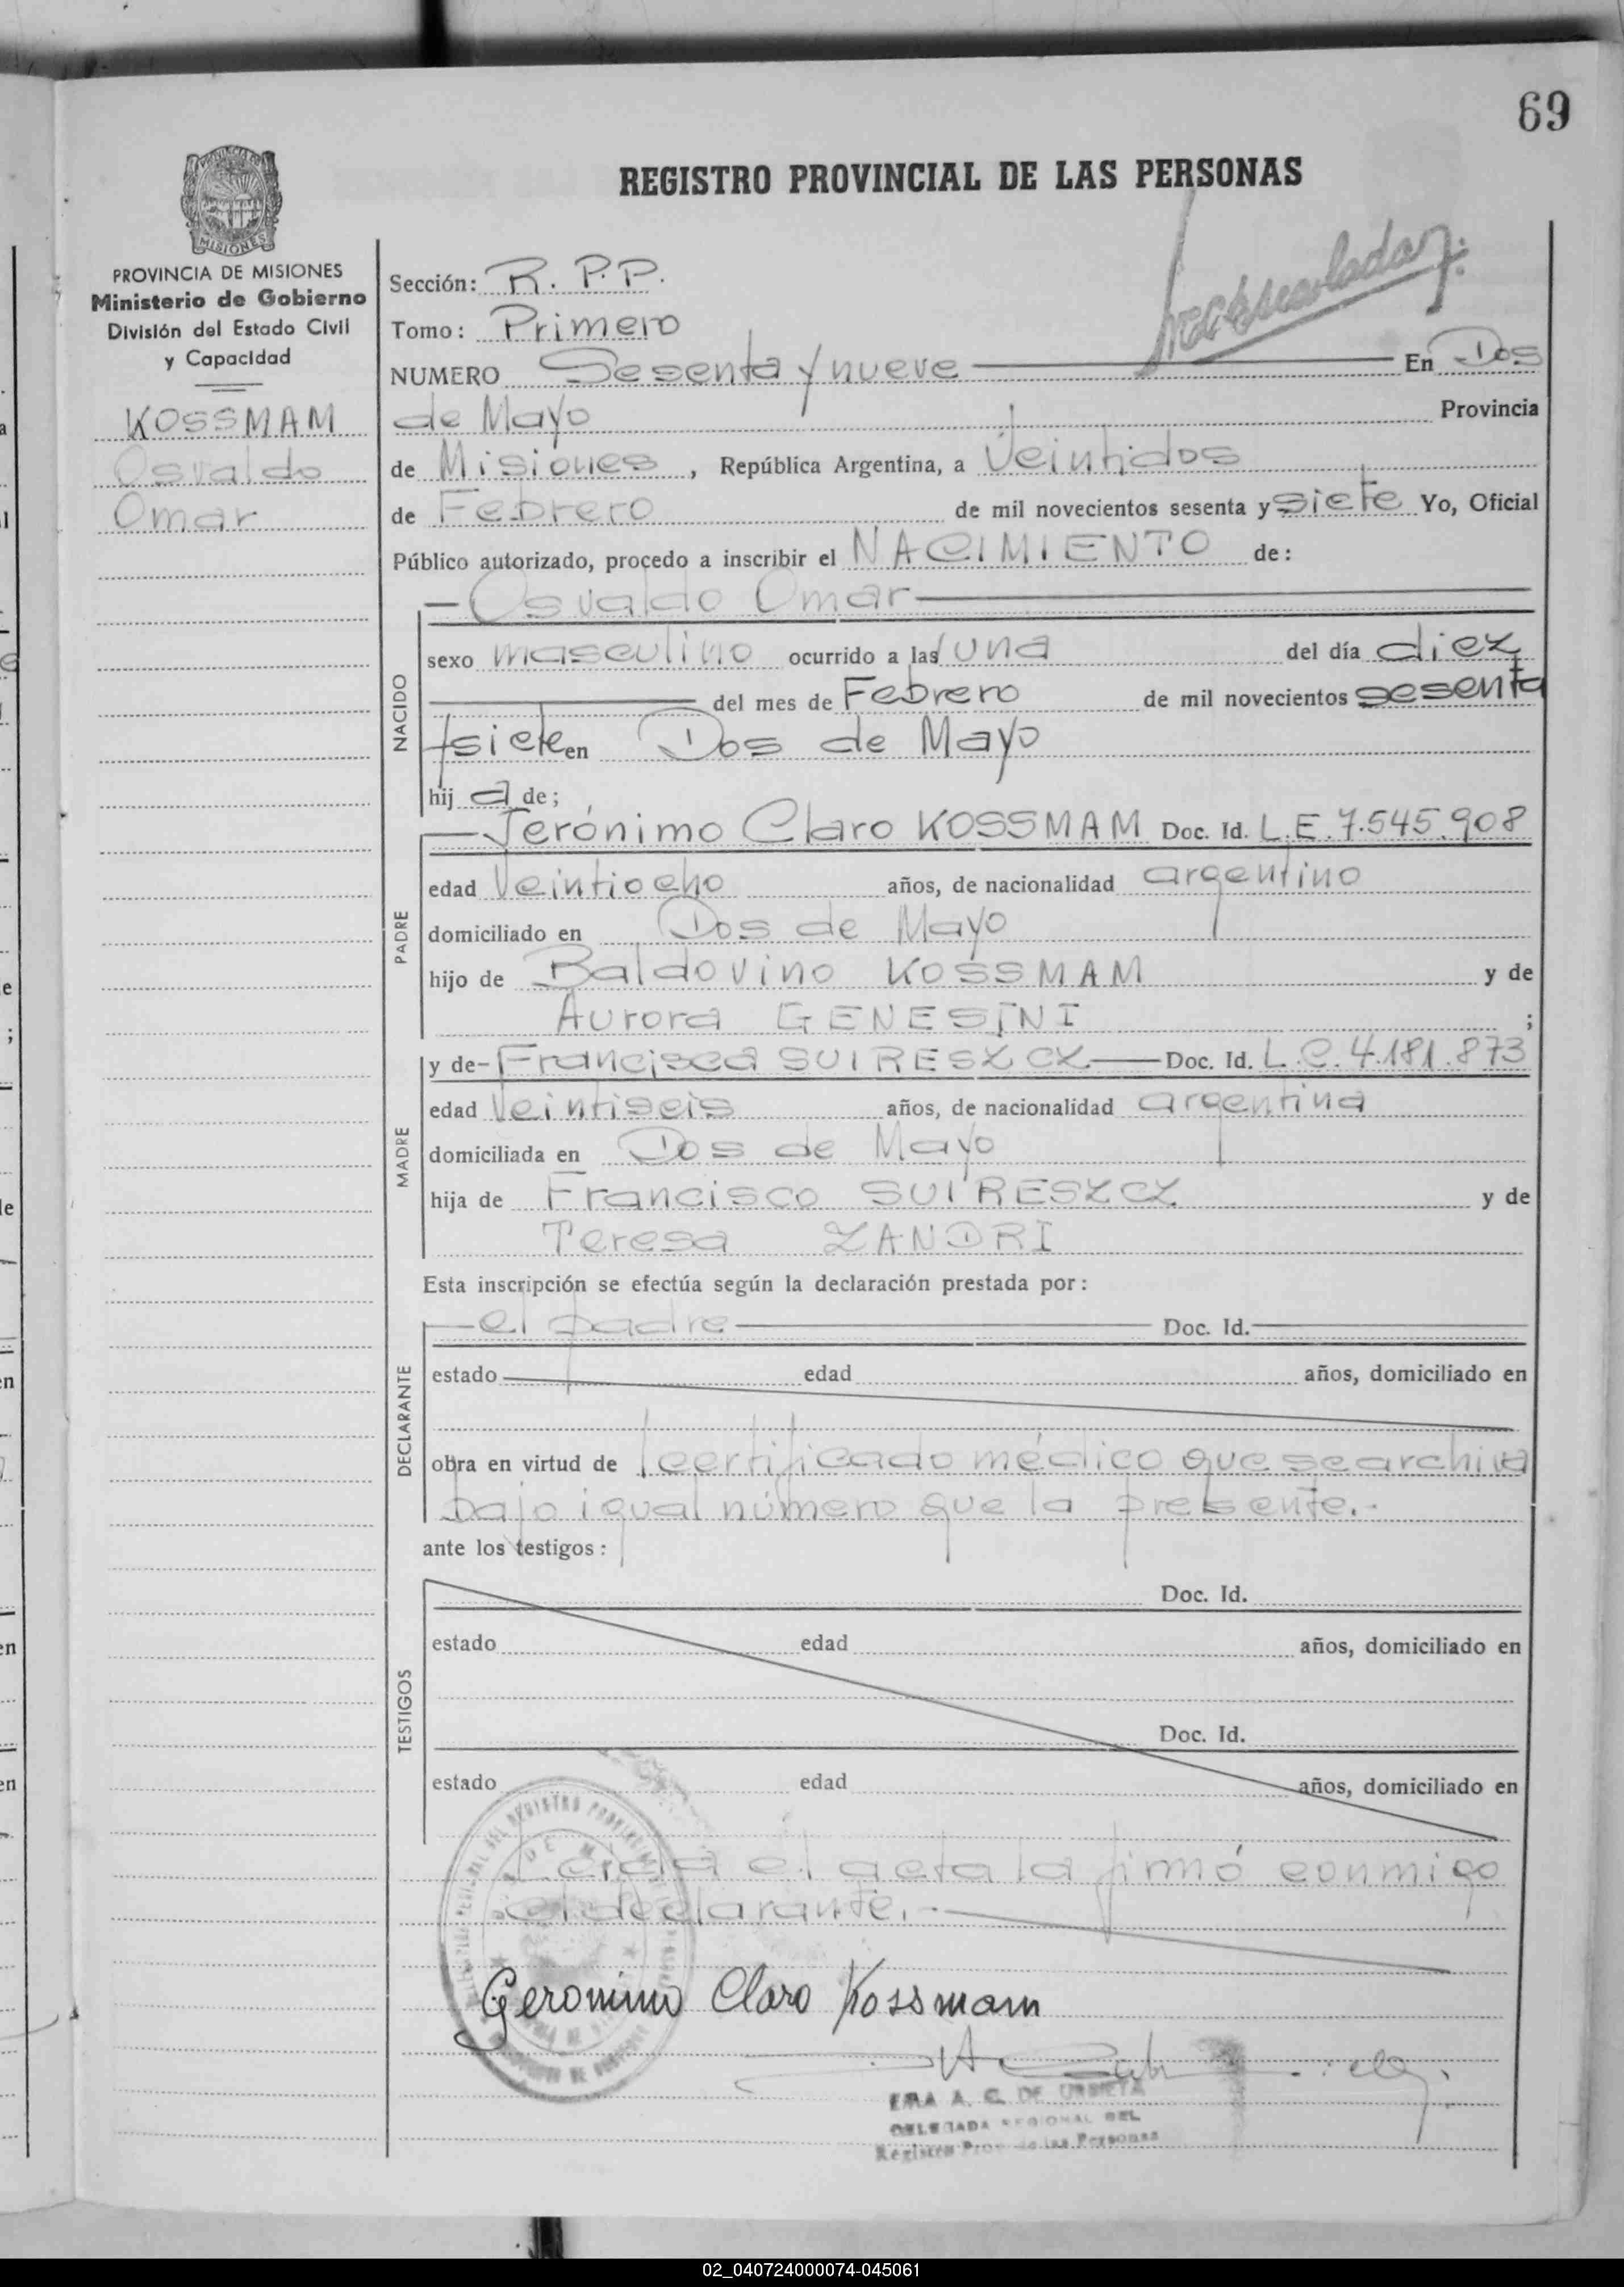 69
REGISTRO PROVINCIAL DE LAS PERSONAS
MISIONES
PROVINCIA DE MISIONES
Ministerio de Gobierno
División del Estado Civil
y Capacidad
KOSSMAM
Osvaldo
Omar
Sección: R. P.P.
Tomo: Primero
NUMERO Sesenta y nueve En Dos
de Mayo Provincia
de Misiones, República Argentina, a Veintidos
de Febrero de mil novecientos sesenta y siete Yo, Oficial
Público autorizado, procedo a inscribir el NACIMIENTO de:
Osvaldo Omar
NACIDO
sexo masculino ocurrido a las una del día diez
del mes de Febrero de mil novecientos sesenta
y siete en Dos de Mayo
hij a de;
PADRE
Jerónimo Claro KOSSMAM Doc. Id. L.E. 7.545.908
edad Veintiocho años, de nacionalidad argentino
domiciliado en Dos de Mayo
hijo de Baldovino KOSSMAM y de
Aurora GENESINI ;
MADRE
y de Francisca SUIRESZCZ Doc. Id. L.C. 4.181.873
edad Veintiseis años, de nacionalidad argentina
domiciliada en Dos de Mayo
hija de Francisco SUIRESZCZ y de
Teresa ZANDRI
Esta inscripción se efectúa según la declaración prestada por:
DECLARANTE
el padre Doc. Id.
estado edad años, domiciliado en
obra en virtud de certificado médico que se archiva
bajo igual número que la presente.-
ante los testigos:
TESTIGOS
Doc. Id.
estado edad años, domiciliado en
Doc. Id.
estado edad años, domiciliado en
Leida el acta la firmó conmigo
el declarante.-
Geronimo Claro Kossmam
EMA A. C. DE URBIETA
DELEGADA REGIONAL DEL
Registro Prov. de las Personas
02_040724000074-045061